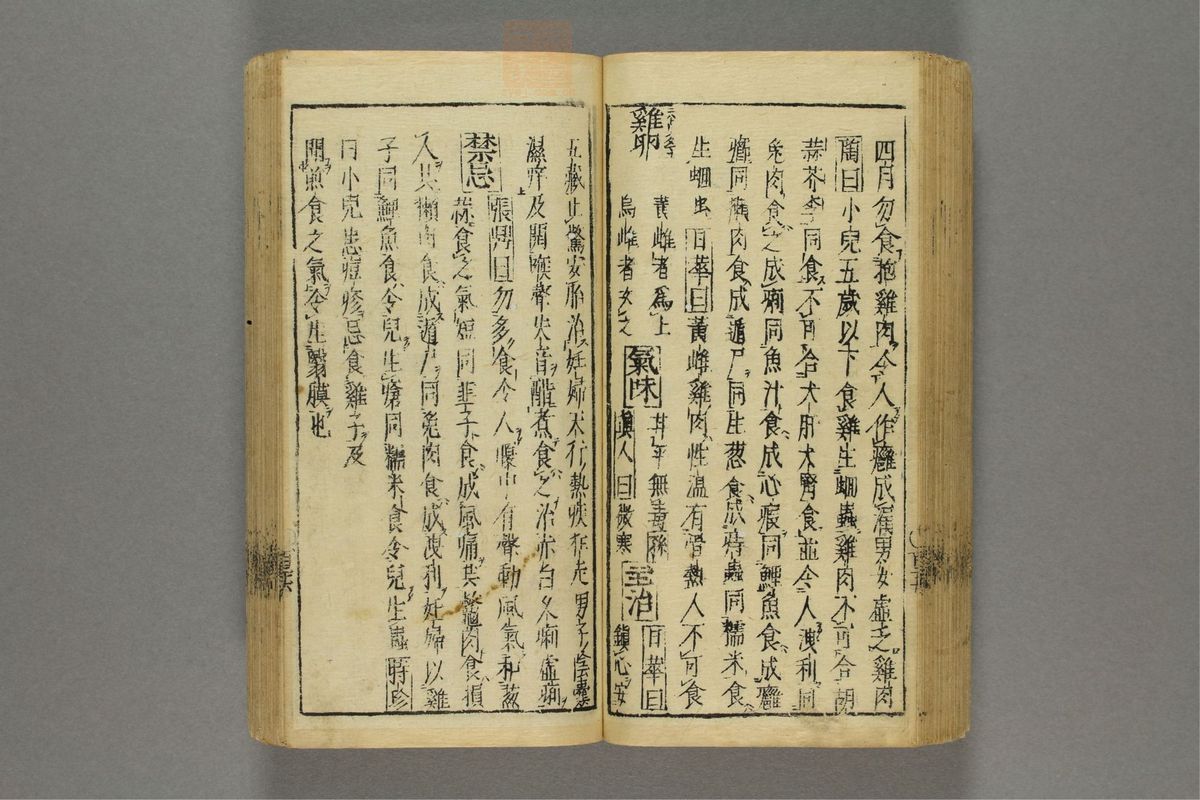 四月勿食抱雞肉令人作癰成漏男女虛乏雞肉
萄曰小兒五歲以下食雞生蛔蟲雞肉不可合胡
蒜芥李同食不可合犬肝犬腎食並令人洩利同
兎肉食之成痢同魚汁食成心瘕同鯉魚食成癰
癤同獺肉食成遁尸同生葱食成痔蟲同糯米食
生蛔虫日華曰黃雌雞肉性溫有骨熱人不可食
雞卵
黃雌者爲上
烏雌者次之
氣味
甘平無毒
眞人曰微寒
主治
日華曰
鎮心安
五臟止驚安胎治妊婦天行熱疾狂走男子陰囊
濕痒及開喉聲失音醋煮食之治赤白久痢虛痢
禁忌
張鼎曰勿多食令人腹中有聲動風氣和葱
蒜食之氣短同韭子食成風痛共鱉肉食損
人共獺肉食成遁尸同兎肉食成洩利妊婦以雞
子同鯉魚食令兒生瘡同糯米食令兒生蟲時珍
曰小兒患痘疹忌食雞子及
聞煎食之氣令生翳膜也